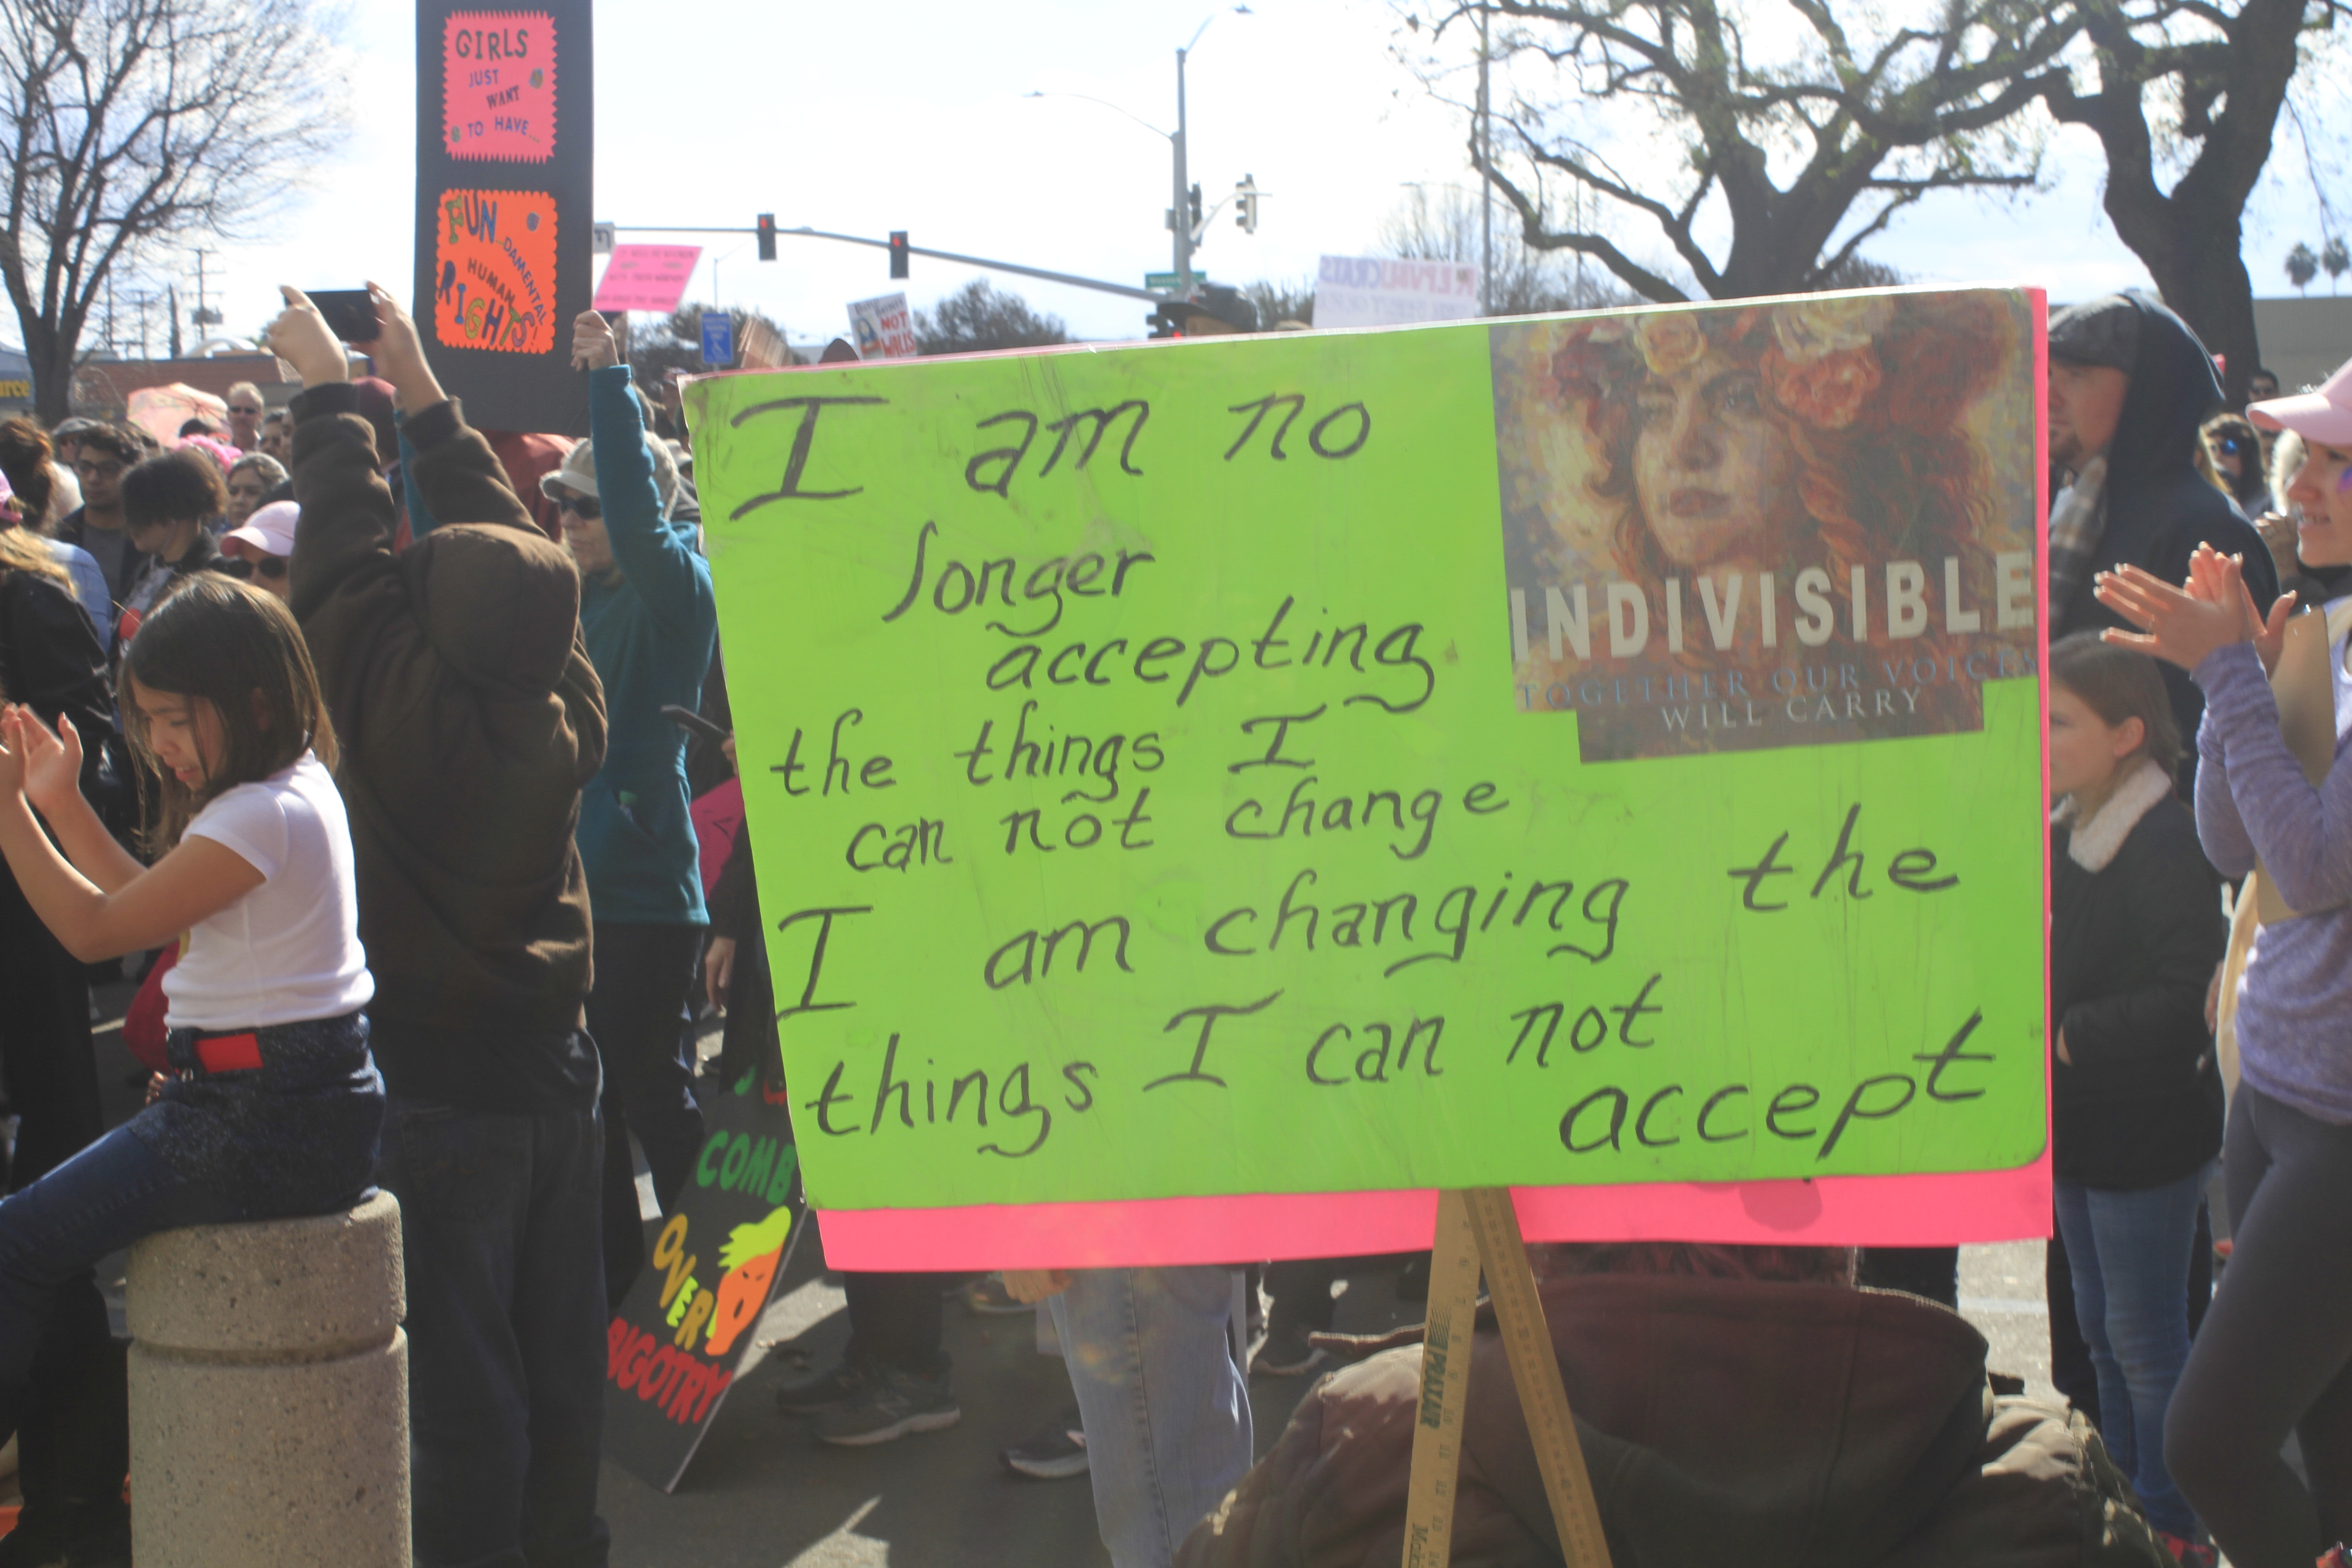 GIRLS
JUST
WANT
TO HAVE...
FUN...DAMENTAL
HUMAN
RIGHTS!
NOT
WALLS
REPUBLICANS
I am no
longer
accepting
the things I
can not change
I am changing the
things I can not
accept
INDIVISIBLE
TOGETHER OUR VOICES
WILL CARRY
COMB
OVER
BIGOTRY